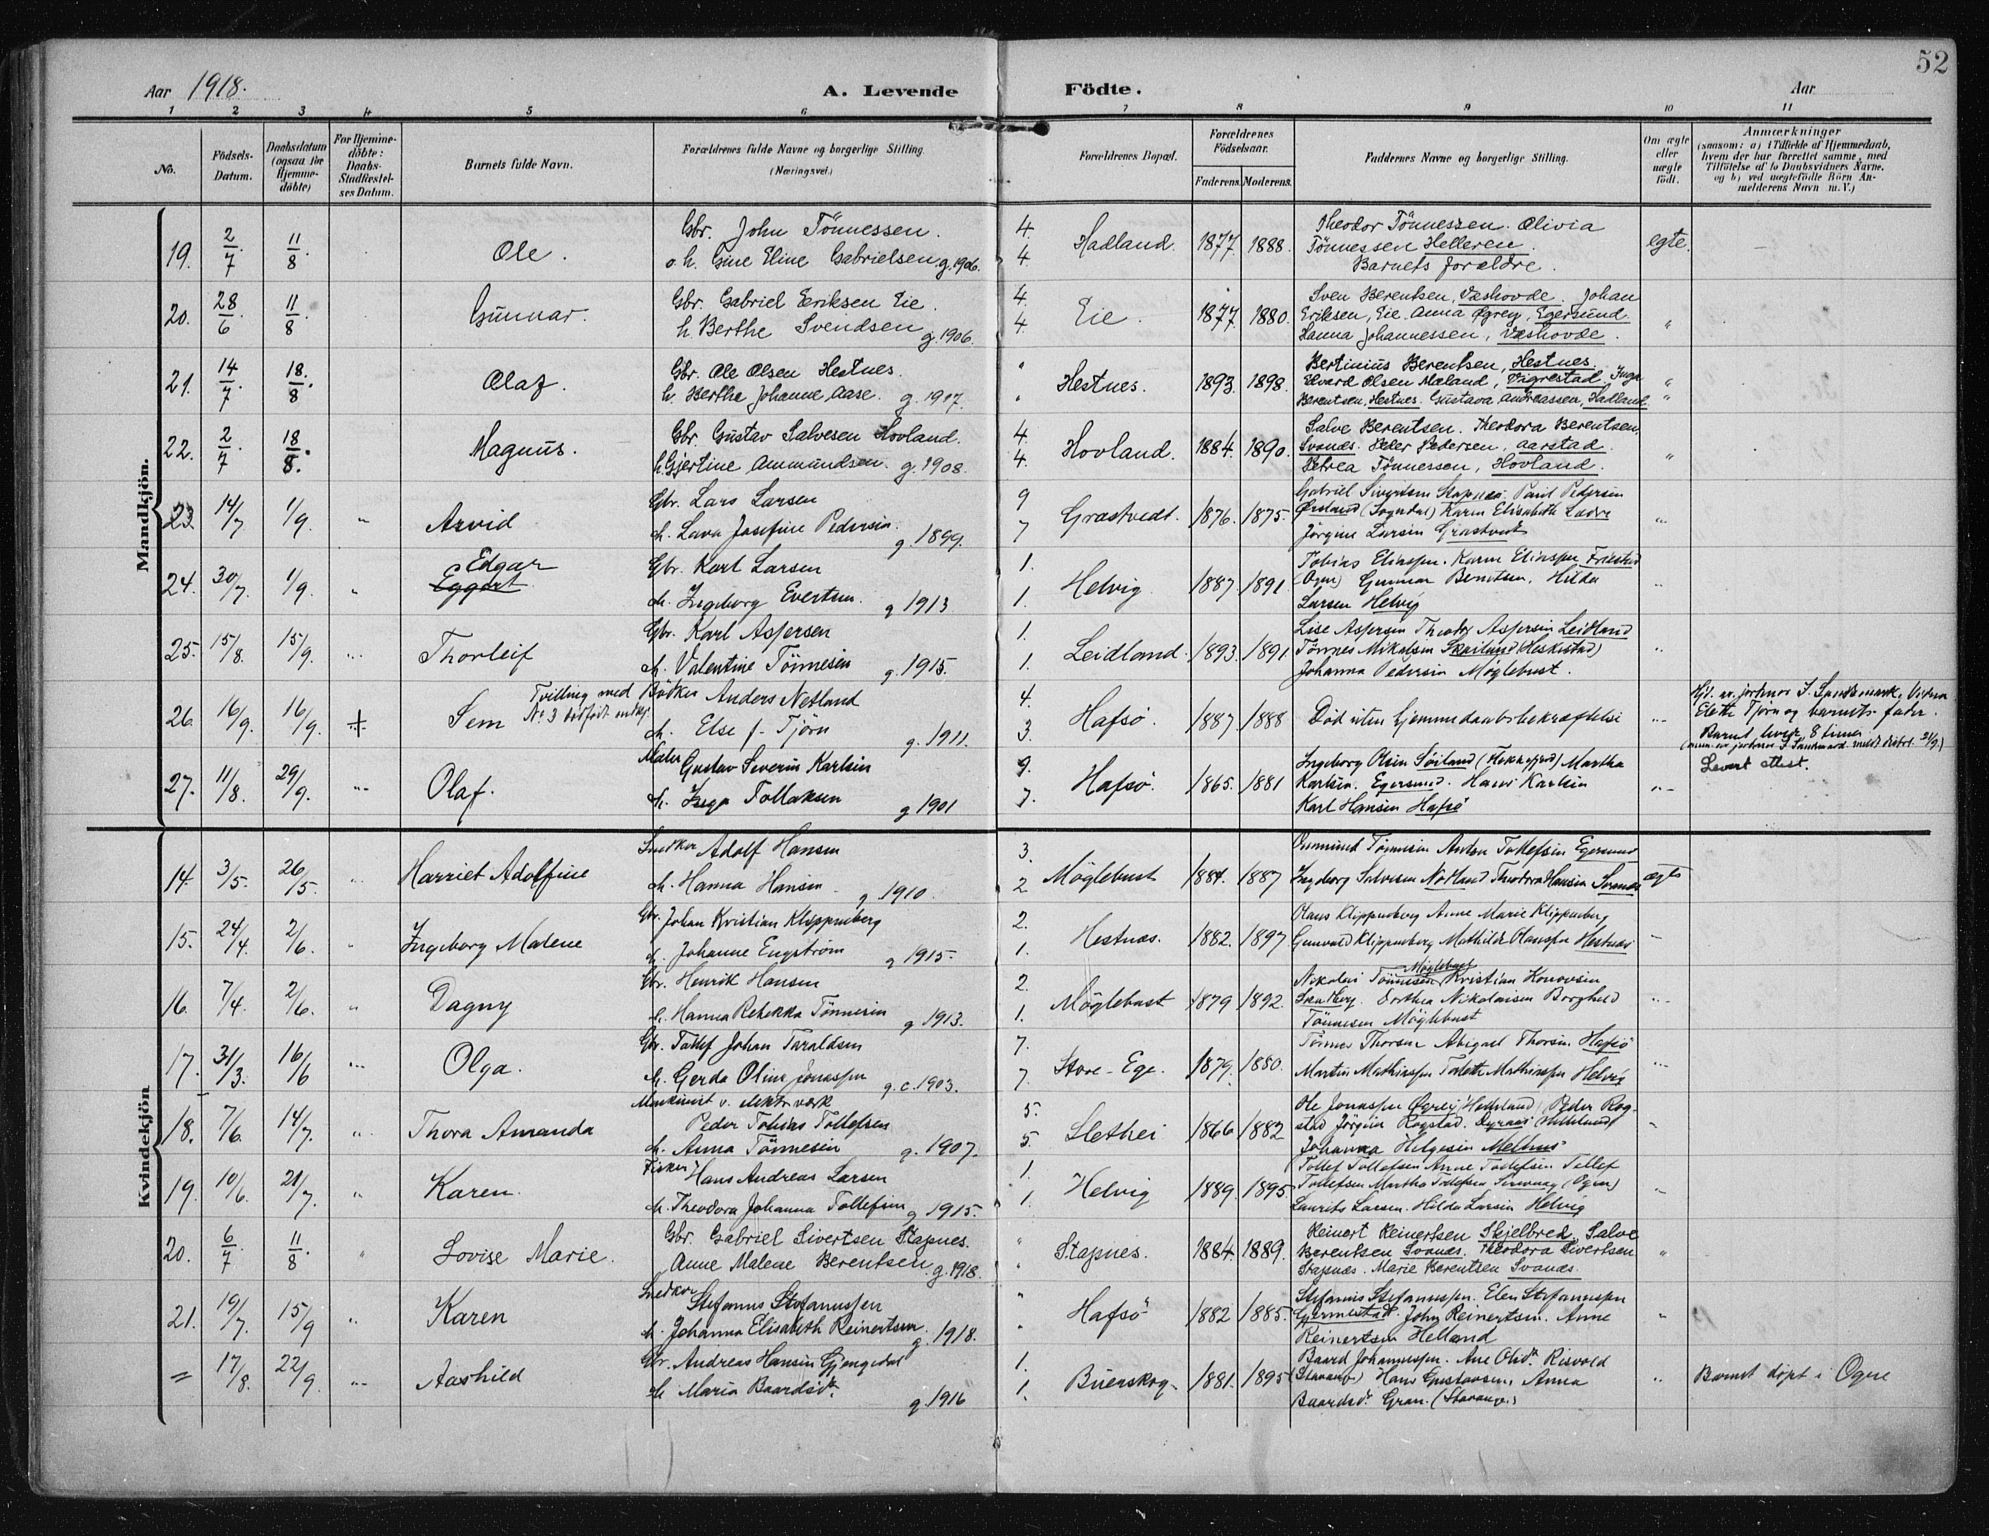 52
Aar 1918. A. Levende Födte. Aar
1 2 3 4 5 6 7 8 9 10 11
No. Födsels-Datum. Daabsdatum (ogsaa for Hjemmedöbte) For Hjemmedöbte: Daabs-Stadfæstelses Datum. Barnets fulde Navn. Forældrenes fulde Navne og borgerlige Stilling (Næringsvei.) Forældrenes Bopæl. Forældrenes Födselsaar. Faderens. Moderens. Faddernes Navne og borgerlige Stilling. Om ægte eller uægte födt. Anmærkninger (saasom: a) i Tilfælde af Hjemmedaab, hvem der har forrettet samme, med Tilföielse af to Daabsvidners Navne, og b) ved uægtefödte Börn Anmelderens Navn m. V.)
Mandkjön.
19. 2/7. 11/8 Ole. Gbr. John Tönnessen. 4. Hadland. 1877. 1888. Theodor Tönnessen. Olivia egte.
o. h. Gine Eline Gabrielsen. g. 1906. 4. Tönnessen Helleren.
Barnets forældre.
20. 28/6 11/8 Gunnar. Gbr. Gabriel Eriksen Eie. 4. Eie. 1877. 1880. Sven Berentsen, Væshovde. Johan "
h. Berthe Svendsen g. 1906. 4 Eriksen, Eie. Anna Øgrey, Egersund.
Hanna Johannessen, Væshovde.
21. 14/7 18/8. Olaf. Gbr. Ole Olsen Hestnes. " Hestnes. 1893. 1898. Bertinius Berentsen, Hestnes. "
h. Berthe Johanne Aase. g. 1917. " Edvard Olsen Mæland, Vigrestad, Inga
Berentsen, Hestnes. Gustava Andreassen, Hadland. "
22. 2/7 18/8. Magnus. Gbr. Gustav Salvesen Hovland. 4. Hovland. 1884. 1890. Salve Berentsen. Theodora Berentsen,
h. Gjertine Ammundsen. g. 1908. 4. Svanes. Peder Pedersen, Aarstad. "
Petrea Tönnessen, Hovland.
23. 14/7 1/9. " Arvid Gbr. Lars Larsen 9 Grastvedt. 1876. 1875. Gabriel Sivertsen Stapnes. Paul Pedersen
h. Lava Josefine Pedersen. g. 1899. 7 Ørsland (Sogndal) Karen Elisabeth "
Jörgine Larsen Grastvedt
24. 30/7. 1/9. " Edgar Eggert Gbr. Karl Larsen 1. Helvig. 1887. 1891 Tobias Eliassen. Karen Eliassen
h. Ingeborg Evertsen. g 1913 1. (Ogne) Gunnar Berntsen. Hilda "
Larsen Helvig
25. 15/8. 15/9. " Thorleif Gbr. Karl Aspersen 1. Leidland. 1893. 1891 Lise Aspersen Theodor Aspersen Leidland
h. Valentine Tönnesen g. 1915. 1. Tönnes Mikalsen Skailand (Heskestad) "
Johanna Pedersen Möglebust.
26. 16/9. 16/9. + Sem Tvilling med No 3 dödfödt mdkj Bödker Anders Netland 4. Hafsö. 1887. 1888 Död uten hjemmedaabsbekræftelse " Hjd. av jordmor S. Sandsmark, Vidner
h. Else f. Tjörn g. 1911. 3. Elette Tjörn og barnets fader.
Barnet levet 8 timer
27. 11/8. 29/9. " Olaf. Maler Gustav Severin Karlsen 9. Hafsö. 1865. 1881 Ingeborg Olsen Söiland (Flekkefjord) Martha Levert attest.
h. Inga Tollaksen g 1901 7. Karlsen. Egersund. Hans Karlsen "
Karl Hansen Hafsö
Kvindekjön
14. 3/5. 26/5. " Harriet Adolfine Snedker Adolf Hansen 3. Möglebust 1884. 1887 Ommund Tönnesen Anton Tollefsen Egersund
h. Hanna Hansen g 1910. 2 Ingeborg Salvesen Nodland Theodora Hansen Svanes ægte
15. 24/4. 2/6. " Ingeborg Malene Gbr. Johan Kristian Klippenberg 2. Hestnæs. 1882. 1897 Olaus Klippenberg Anne Marie Klippenberg
h. Johanne Engström g 1915. 1. Gunvald Klippenberg Mathilde Olaussen Hestnæs "
16. 7/4. 2/6. " Dagny Gbr. Henrik Hansen 2. Möglebust 1879 1892. Nikolai Tönnesen Möglebust Kristian
h. Hanna Rebekka Tönnesen g 1913. 1. Dorthea Nikolaisen Borghild "
Tönnesen Möglebust
17. 31/3. 16/6 " Olga. Gbr. Tollef Johan Taraldsen 7. Store-Ege. 1879. 1880. Tönnes Thorsen Abigael Thorsen. Hafsö "
h. Gerda Oline Jonassen g. c. 1903. 7. Martin Mathiassen Tolette Mathiassen Helvig
18. 7/6. 14/7. " Thora Amanda Maskinist v. elektr. værk Peder Tobias Tollefsen 5. Slethei 1866 1882 Ole Jonassen Øgrey (Hetland) Peder Rog-
h. Anna Tönnesen g. 1907. 5. stad Jörgine Rogstad. "
Johanna Helgesen Melhus
19. 10/6. 21/7. " Karen. Fisker Hans Andreas Larsen 1. Helvig 1889. 1895. Tollef Tollefsen Anne Tollefsen. Tollef
h. Theodora Johanna Tollefsen g 1915. 1. Tollefsen Martha Tollefsen (Ogne) "
Laurits Larsen. Hilda Larsen Helvig
20. 6/7 11/8. " Lovise Marie. Gbr. Gabriel Sivertsen Stapnes. " Stapnes. 1884. 1889. Reinert Reinertsen Skjelbred, Salve
Anne Malene Berentsen. g. 1918. " Berentsen Svanes. Theodora Sivertsen "
Stapnæs. Marie Berentsen Svanes.
21. 19/7. 15/9 " Karen Snedker Stefanus Stefanussen " Hafsö 1882 1885. Stefanus Stefanussen. Elen Stefanussen
h. Johanna Elisabeth Reinertsen. g. 1918. " Gjermestad. John Reinertsen. Anne "
Reinertsen Helland
= 17/8. 22/9. " Aashild Gbr. Andreas Hansen Gjengedal 1. Buerskog 1881. 1895 Baard Johannessen. Ane Olsdtr Risvold " Barnet döpt i Ogne
h. Maria Baardsdtr. g. 1916 1. (Stavang) Hans Gustavsen, Anna
Baardsdtr. Gran. (Stavang.)